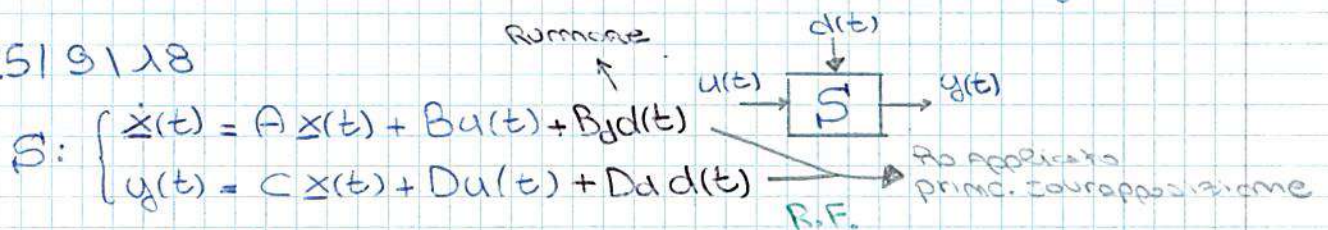 5|9|18
Rumore
d(t)
u(t) S y(t)
S: { ẋ(t) = A x(t) + Bu(t) + Bd d(t)
y(t) = C x(t) + Du(t) + Dd d(t)
Ho applicato
princ. sovrapposizione
R.F.